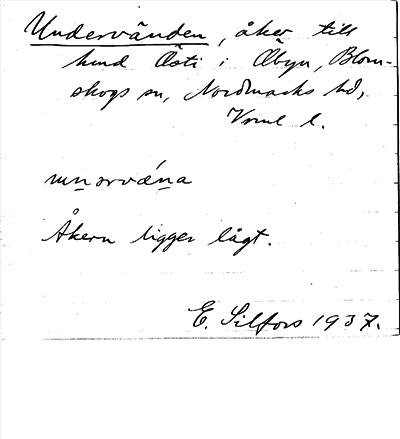 Undervänden, åker till
hmd Östi i Öbyn, Blom-
skogs sn, Nordmarks hd,
Vrml l.
Åkern ligger lågt.
E. Silfors 1937.